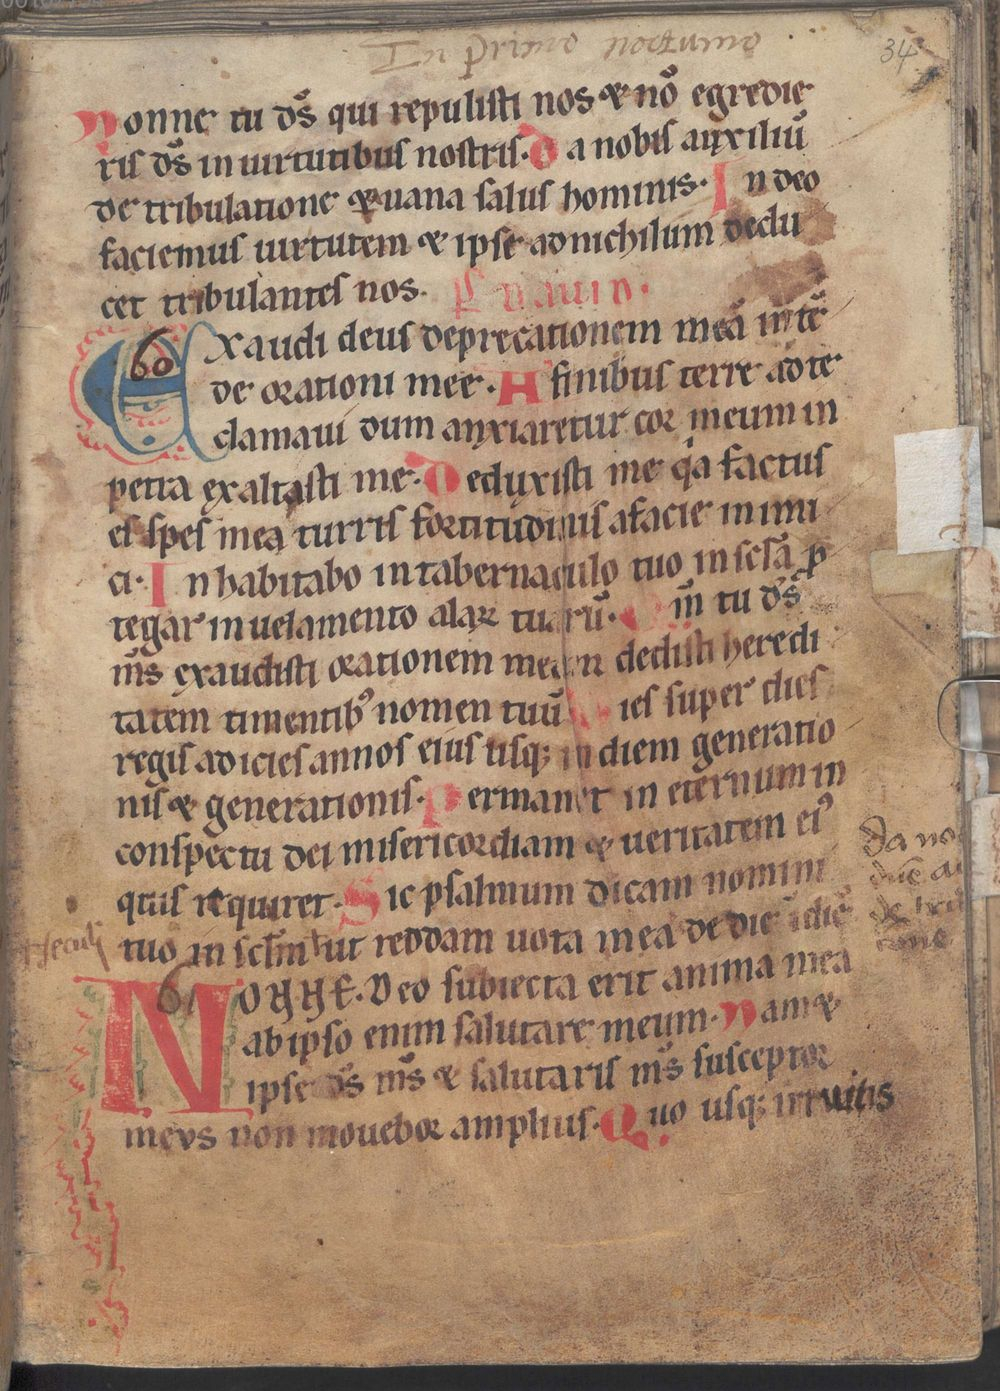 In Primo nocturno
34
Nonne tu ds̄ qui repulisti nos & nō egredie
ris ds̄ in uirtutibus nostris. Da nobis auxiliū
de tribulatione & uana salus hominis. In deo
faciemus uirtutem & ipse ad nichilum dedu
cet tribulantes nos. Ps dauid.
60
Exaudi deus deprecationem meā intē
de orationi mee. A finibus terre ad te
clamaui dum anxiaretur cor meum in
petra exaltasti me. Deduxisti me qa factus
es spes mea turris fortitudinis a facie inimi
ci. Inhabitabo in tabernaculo tuo in scl̄a p
tegar in uelamento alaꝝ tuarū. Qm̄ tu ds̄
ms̄ exaudisti orationem meam dedisti heredi
tatem timentibꝰ nomen tuū. Dies super dies
regis adicies annos eius usqꝫ in diem generatio
nis & generationis. Permanet in eternum in
conspectu dei misericordiam & ueritatem eiꝰ
quis requiret. Sic psalmum dicam nomini
tuo in scl̄m seculi ut reddam uota mea de die ī diē
Da no
seculi
61
NONNE. Deo subiecta erit anima mea
ab ipso enim salutare meum. Nam &
ipse ds̄ ms̄ & salutaris ms̄ susceptor
meus non mouebor amplius. Quo usqꝫ irruitis